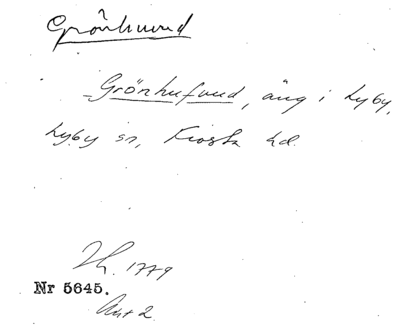 Grönhuvud
Grönhufvud, äng i Lyby,
Lyby sn, Frosta hd.
Th. 1779
Nr 5645.
Akt 2